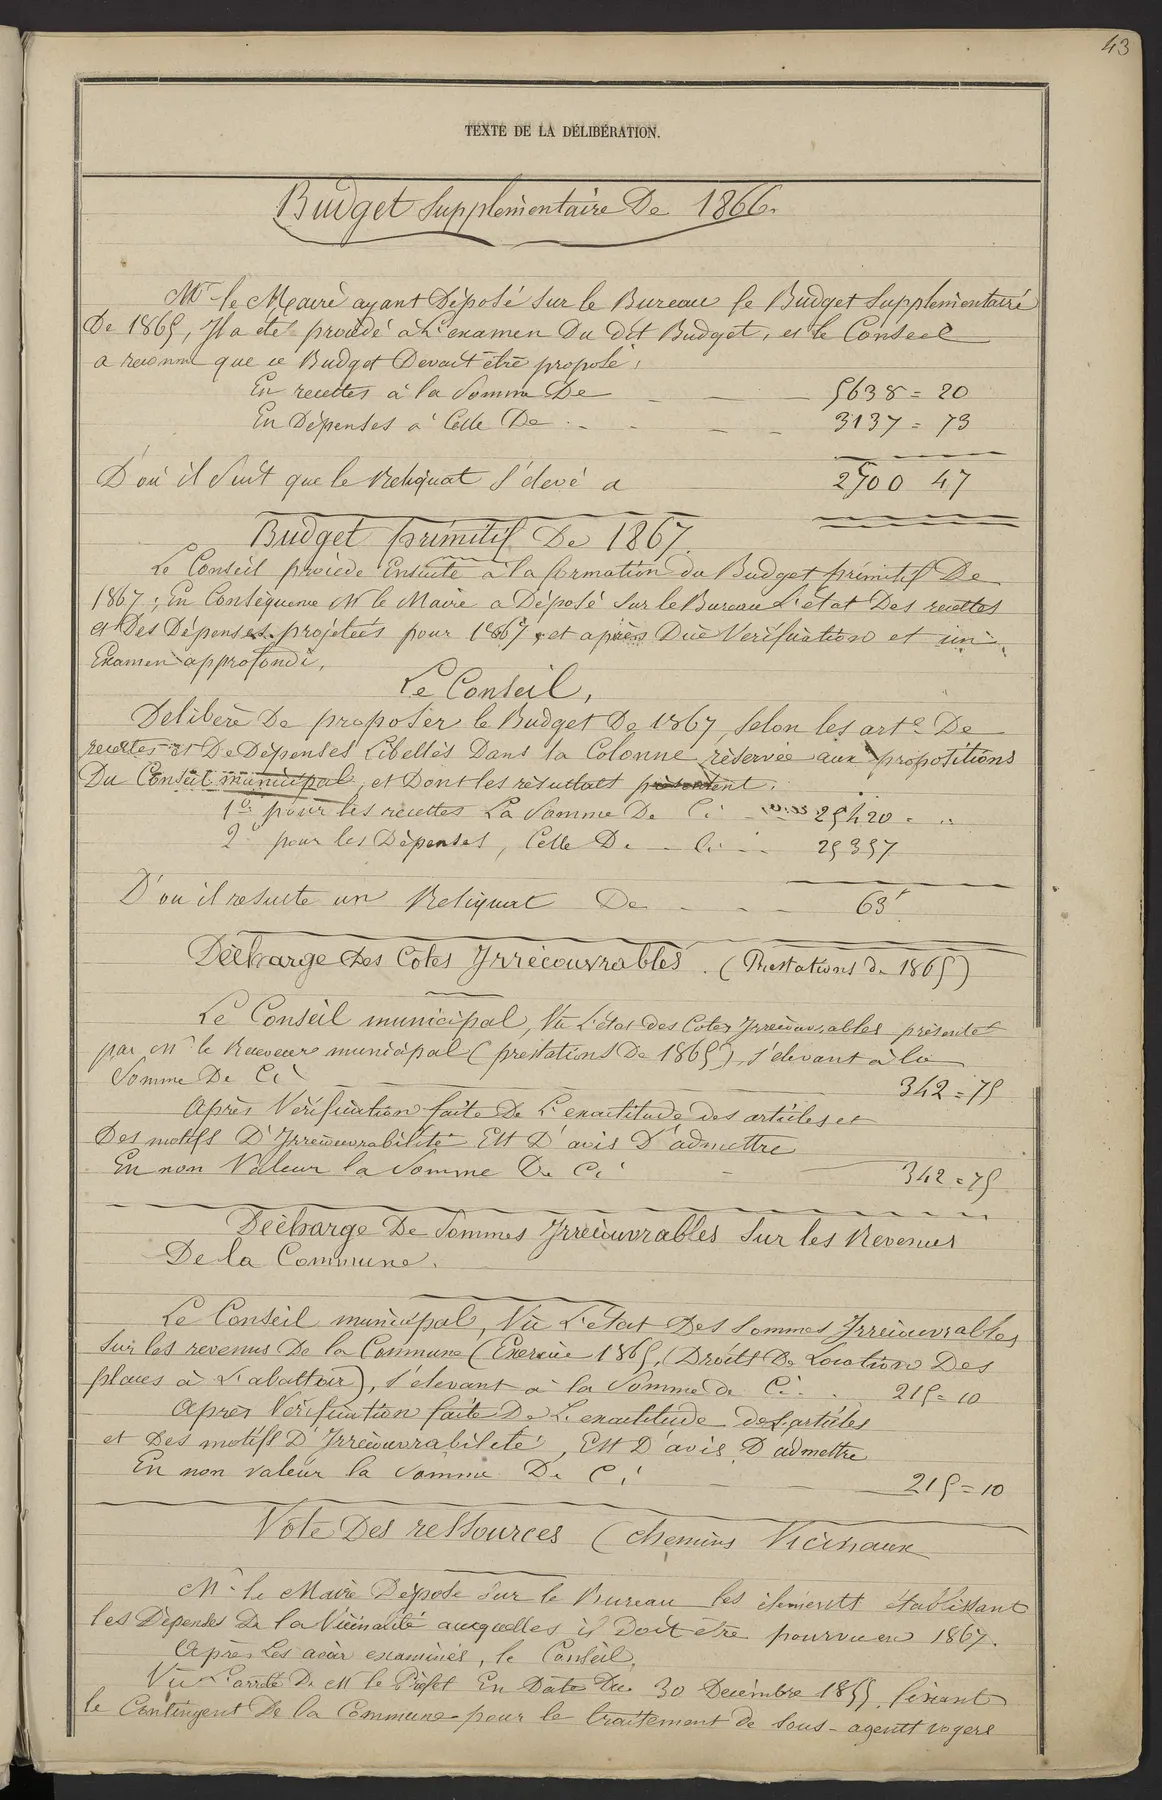 43
TEXTE DE LA DÉLIBÉRATION.
Budget Supplementaire De 1866.
Mr le Maire ayant Déposé sur le Bureau le Budget Supplementaire
De 1865, Il a été procédé à L'examen Du dit Budget, et le Conseil
a reconnu que ce Budget Devait être proposé;
En recettes à la Somme De 5638 = 20
En Dépenses à Celle De 3137 = 73
D'où il Suit que le Reliquat S'élevé a 2500 47
Budget primitif De 1867.
Le Conseil procède Ensuite à la formation du Budget primitif De
1867; En Conséquence Mr le Maire a Déposé Sur le Bureau L'état Des recettes
et Des Dépenses projetées pour 1867, et après Due Vérification et un
Examen approfondi,
Le Conseil,
Délibère De proposer le Budget De 1867, Selon les arte De
recettes et De Dépenses Libellés Dans la Colonne réservée aux propositions
Du Conseil municipal, et Dont les résultats présentent:
1o pour les recettes La Somme De Ci 25420 = "
2o pour les Dépenses, Celle De Ci 25357
D'où il résulte un Reliquat De 63f
Décharge Des Cotes Irrécouvrables. (Prestations de 1865)
Le Conseil municipal, Vu L'état des Cotes Irrécouvrables présenté
par Mr le Receveur municipal (prestations De 1865), s'élevant à la
Somme De Ci 342 = 75
Après Vérification faite De L'exactitude des articles et
Des motifs D'Irrécouvrabilité Est D'avis D'admettre
En non Valeur la Somme De Ci 342 = 75
Décharge De Sommes Irrécouvrables Sur les Revenus
De la Commune.
Le Conseil municipal, Vu L'état Des Sommes Irrécouvrables
Sur les revenus De la Commune (Exercice 1865, (Droits De Location Des
places à L'abattoir), s'élevant à la Somme De Ci. 215 = 10
Après Vérification faite De L'exactitude des articles
et Des motifs D'Irrécouvrabilité, Est D'avis D'admettre
En non valeur la Somme De Ci 215 = 10
Vote Des ressources (Chemins Vicinaux
Mr le Maire Dépose Sur le Bureau les élémentts établissant
les Dépenses De la Vicinalité auxquelles il Doit être pourvu en 1867.
Après Les avoir examinés, le Conseil,
Vu L'arrêté De Mr le Préfet En Date Du 30 Décembre 1855, fixant
le Contingent De la Commune pour le traitement de Sous-agentt voyers